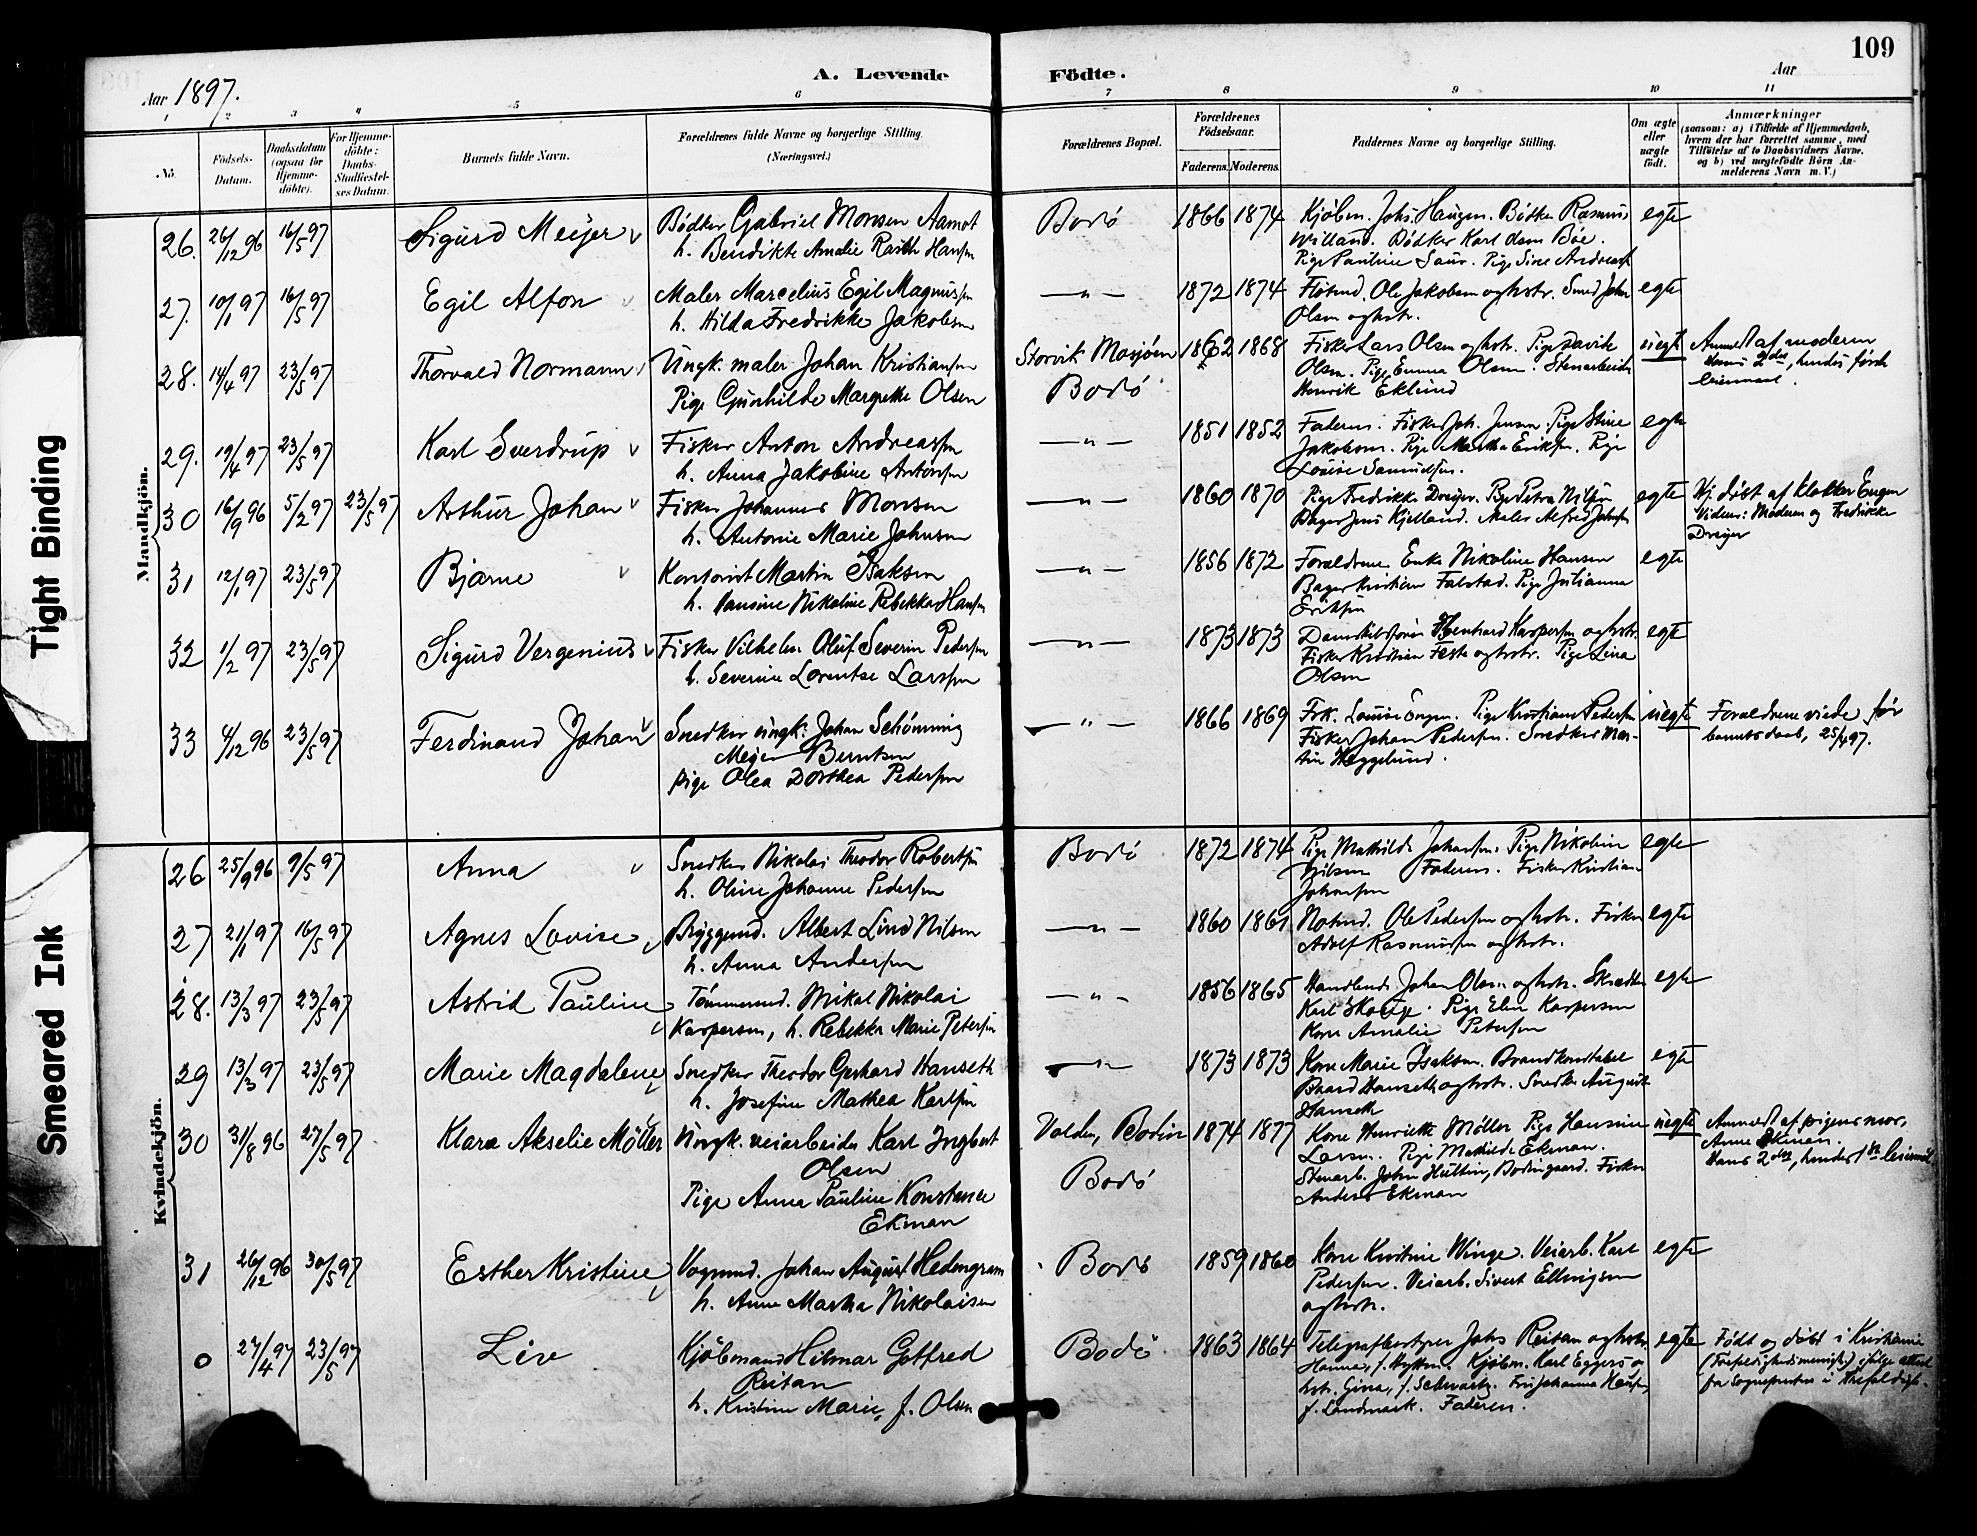 109
Aar 1897. A. Levende Födte. Aar
1 2 3 4 5 6 7 8 9 10 11
No. Födsels-Datum. Daabsdatum (ogsaa for Hjemme-döbte). For Hjemme-döbte: Daabs-Stadfæstel-ses Datum. Barnets fulde Navn. Forældrenes fulde Navne og borgerlige Stilling. (Næringsvei.) Forældrenes Bopæl. Forældrenes Födselsaar. Faderens. Moderens. Faddernes Navne og borgerlige Stilling. Om ægte eller uægte født. Anmærkninger (saasom: a) i Tilfælde af Hjemmedaab, hvem der har forrettet samme, med Tilföielse af to Daabsvidners Navne, og b) ved uægtefödte Börn An-melderens Navn m. V.)
Mandkjön.
26. 26/12 96 16/5 97 Sigurd Meijer Bødker Gabriel Monsen Aamot Bodø 1866 1874 Kjøbm. Johs. Haugen. Bødker Rasmus egte
h. Bendikte Amalie Hansen Willand. Bødker Karl Bøe.
Pige Pauline. Pige Sine Andreass
27. 10/1 97 16/5 97 Egil Alfon Maler Marcelius Egil Magnussen — " — 1872 1874 Ole Jakobsen og hstr. Smed John egte
h. Hilda Fredrikke Jakobsen Olsen og hstr.
28. 14/4 97 23/5 97 Thorvald Normann Ungk. maler Johan Kristiansen Storvik Mosjøen 1862 1868 Fisker Lars Olsen og hstr. Pige uegte Anmeldt af moderen
Pige Gunhilde Margrethe Olsen Bodø Olsen. Pige Emma Olsen. Stenarbeider Hans 2det, hendes første
Henrik Eklund leiermaal.
29. 19/4 97 23/5 97 Karl Sverdrup Fisker Anton Andreassen — " — 1851 1852 Faderen. Fisker Joh. Jensen. Pige Stine egte
h. Anna Jakobine Antonsen Jakobsen. Pige Martha Eriksen. Pige
Louise Samuelsen.
30 16/9 96 5/2 97 23/5 97 Arthur Johan Fisker Johannes Monsen — " — 1860 1870 Pige Fredrikke Dreijer. Pige Petra Nilsen egte Hj. døbt af klokker Engen
h. Antonie Marie Johnsen Bager Jens Kjelland. Maler Alfred Johnsen Vidner: Moderen og Fredrikke
Dreijer
31 12/1 97 23/5 97 Bjarne Kontorist Martin Isaksen — " — 1856 1872 Forældrene Enke Nikoline Hansen egte
h. Hansine Nikoline Rebekka Hansen Bager Kristian Falstad. Pige Julianna
Eriksen
32 1/2 97 23/5 97 Sigurd Vergenius Fisker Vilhelm Oluf Severin Pedersen — " — 1873 1873 Dampskibsfører Kaspersen og hstr. egte
h. Severine Lorentse Larssen Fisker Kristian Feste og hstr. Pige Lina
Olsen
33 4/12 96 23/5 97 Ferdinand Johan Snedker ungk: Johan Schönning — " — 1866 1869 Frk. Louise Engen. Pige Kristiane Pedersen uegte Forældrene viede før
Meyer Berntsen Fisker Johan Pedersen. Snedker Mar- barnets daab, 25/4 97.
pige Olea Dorthea Pedersen tin Heggelund.
Kvindekjön.
26 25/9 96 9/5 97 Anna Snedker Nikolai Theodor Robertsen Bodø 1872 1874 Pige Mathilde Johansen. Pige Nikoline egte
h. Oline Johanne Pedersen Nilsen Faderen. Fisker Kristian
Johansen
27 21/1 97 16/5 97 Agnes Lovise Bryggemd. Albert Lind Nilsen — " — 1860 1861 Notmd. Ole Pedersen og hstr. Fisker egte
h. Anna Andersen Adolf Rasmussen og hstr.
28. 13/3 97 23/5 97 Astrid Pauline Tömmermd. Mikal Nikolai — " — 1856 1865 Handlende Johan Olsen og hstr. Skrædder egte
Kaspersen, h. Rebekka Marie Petersen Karl Skauge. Pige Elen Kaspersen
Kone Amalie Petersen
29 13/3 97 23/5 97 Marie Magdalene Snedker Theodor Gerhard Hanseth — " — 1873 1873 Kone Marie Isaksen. Brandkonstabel egte
h. Josefine Mathea Karlsen Baard Hanseth og hstr. Snedker August
Hanseth
30 31/8 96 27/5 97 Klara Akselie Möller Ungk. veiarbeider Karl Ingbert Valden, Bodin 1874 1877 Kone Henriette Möller Pige Hansine uegte Anmeldt af pigens mor,
Olsen Larsen. Pige Mathilde Ekman. Anne Ekman.
Pige Anna Pauline Konstanse Bodø Stenarb. John Hultin, Bodingaard. Fisker Hans 2det, hendes 1ste leiermaal
Ekman Anders Ekman
31 26/12 96 30/5 97 Esther Kristine Vognmd. Johan August Hedengran Bodø 1859 1860 Kone Kristine Winge. Veiarb. Karl egte
h. Anne Martha Nikolaisen Pedersen. Veiarb. Sivert Ellingsen
og hstr.
0 27/4 97 23/5 97 Liv Kjöbmand Hilmar Gotfred Bodö 1863 1864 Telegrafbestyrer Johs Reitan og hstr. egte Født og døbt i Kristiania
Reitan Hanna, f. Kjöbm. Karl Eggers og (Trefoldighedsmenigh.) ifølge attest
h. Kristine Marie, f. Olsen hstr. Gina, f. Schwartz. Fru Johanna Hansen, fra Sognepresten i Trefoldigh.
f. Landmark. Faderen.
Tight Binding
Smeared Ink